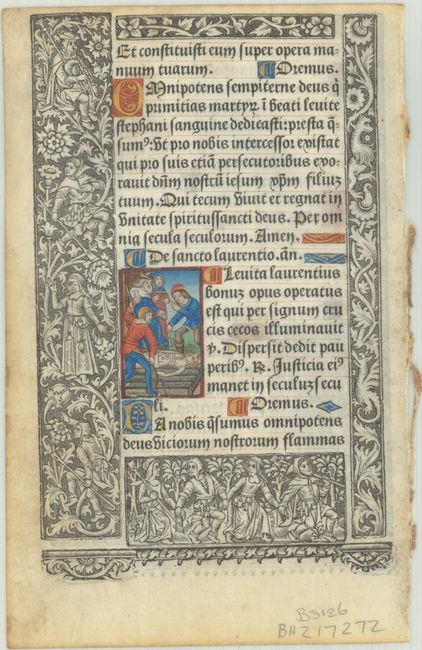 Et constituisti eum super opera ma-
nuum tuarum. Oremus.
OMnipotens sempiterne deus q̃
primitias martyꝝ ĩ beati leuite
stephani sanguine dedicasti: presta q̃-
sumꝰ: Vt pro nobis intercessor existat
qui pro suis etiã persecutoribus exo-
rauit dñm nostrũ iesum xp̃m filiuʒ
tuum. Qui tecum viuit et regnat in
vnitate spiritussancti deus. Per om
nia secula seculorum. Amen.
De sancto laurentio. añ.
Leuita laurentius
bonuʒ opus operatus
est qui per signum cru
cis cecos illuminauit
℣. Dispersit dedit pau
peribꝰ. ℟. Justicia eiꝰ
manet in seculuʒ secu
li. Oremus.
DA nobis q̃sumus omnipotens
deus viciorum nostrorum flammas
BS126
BH217272